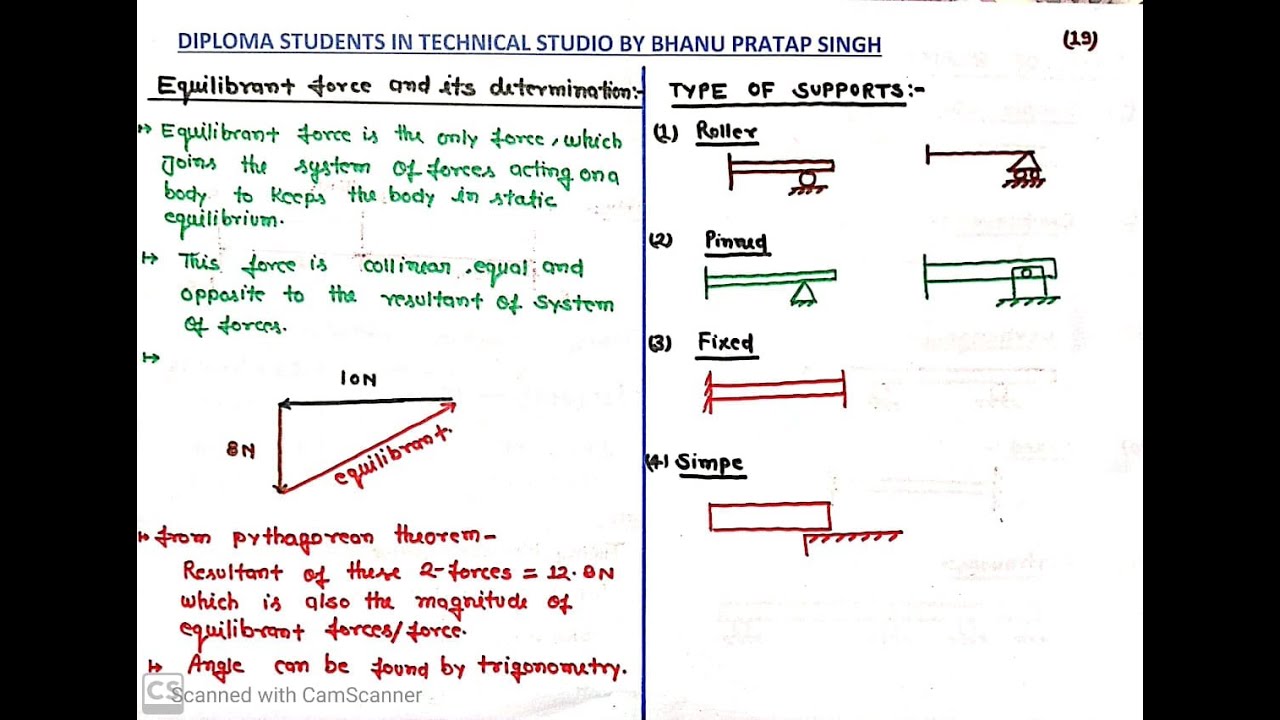 DIPLOMA STUDENTS IN TECHNICAL STUDIO BY BHANU PRATAP SINGH
(19)
Equilibrant force and its determination:-
Equilibrant force is the only force, which
Joins the system of forces acting on a
body to keeps the body in static
equilibrium.
This force is collinear, equal and
opposite to the resultant of system
of forces.
10N
8N
equilibrant.
from pythagorean theorem-
Resultant of these 2-forces = 12.8N
which is also the magnitude of
equilibrant forces/force.
Angle can be found by trigonometry.
TYPE OF SUPPORTS:-
(1) Roller
(2) Pinned
(3) Fixed
(4) Simpe
CS Scanned with CamScanner